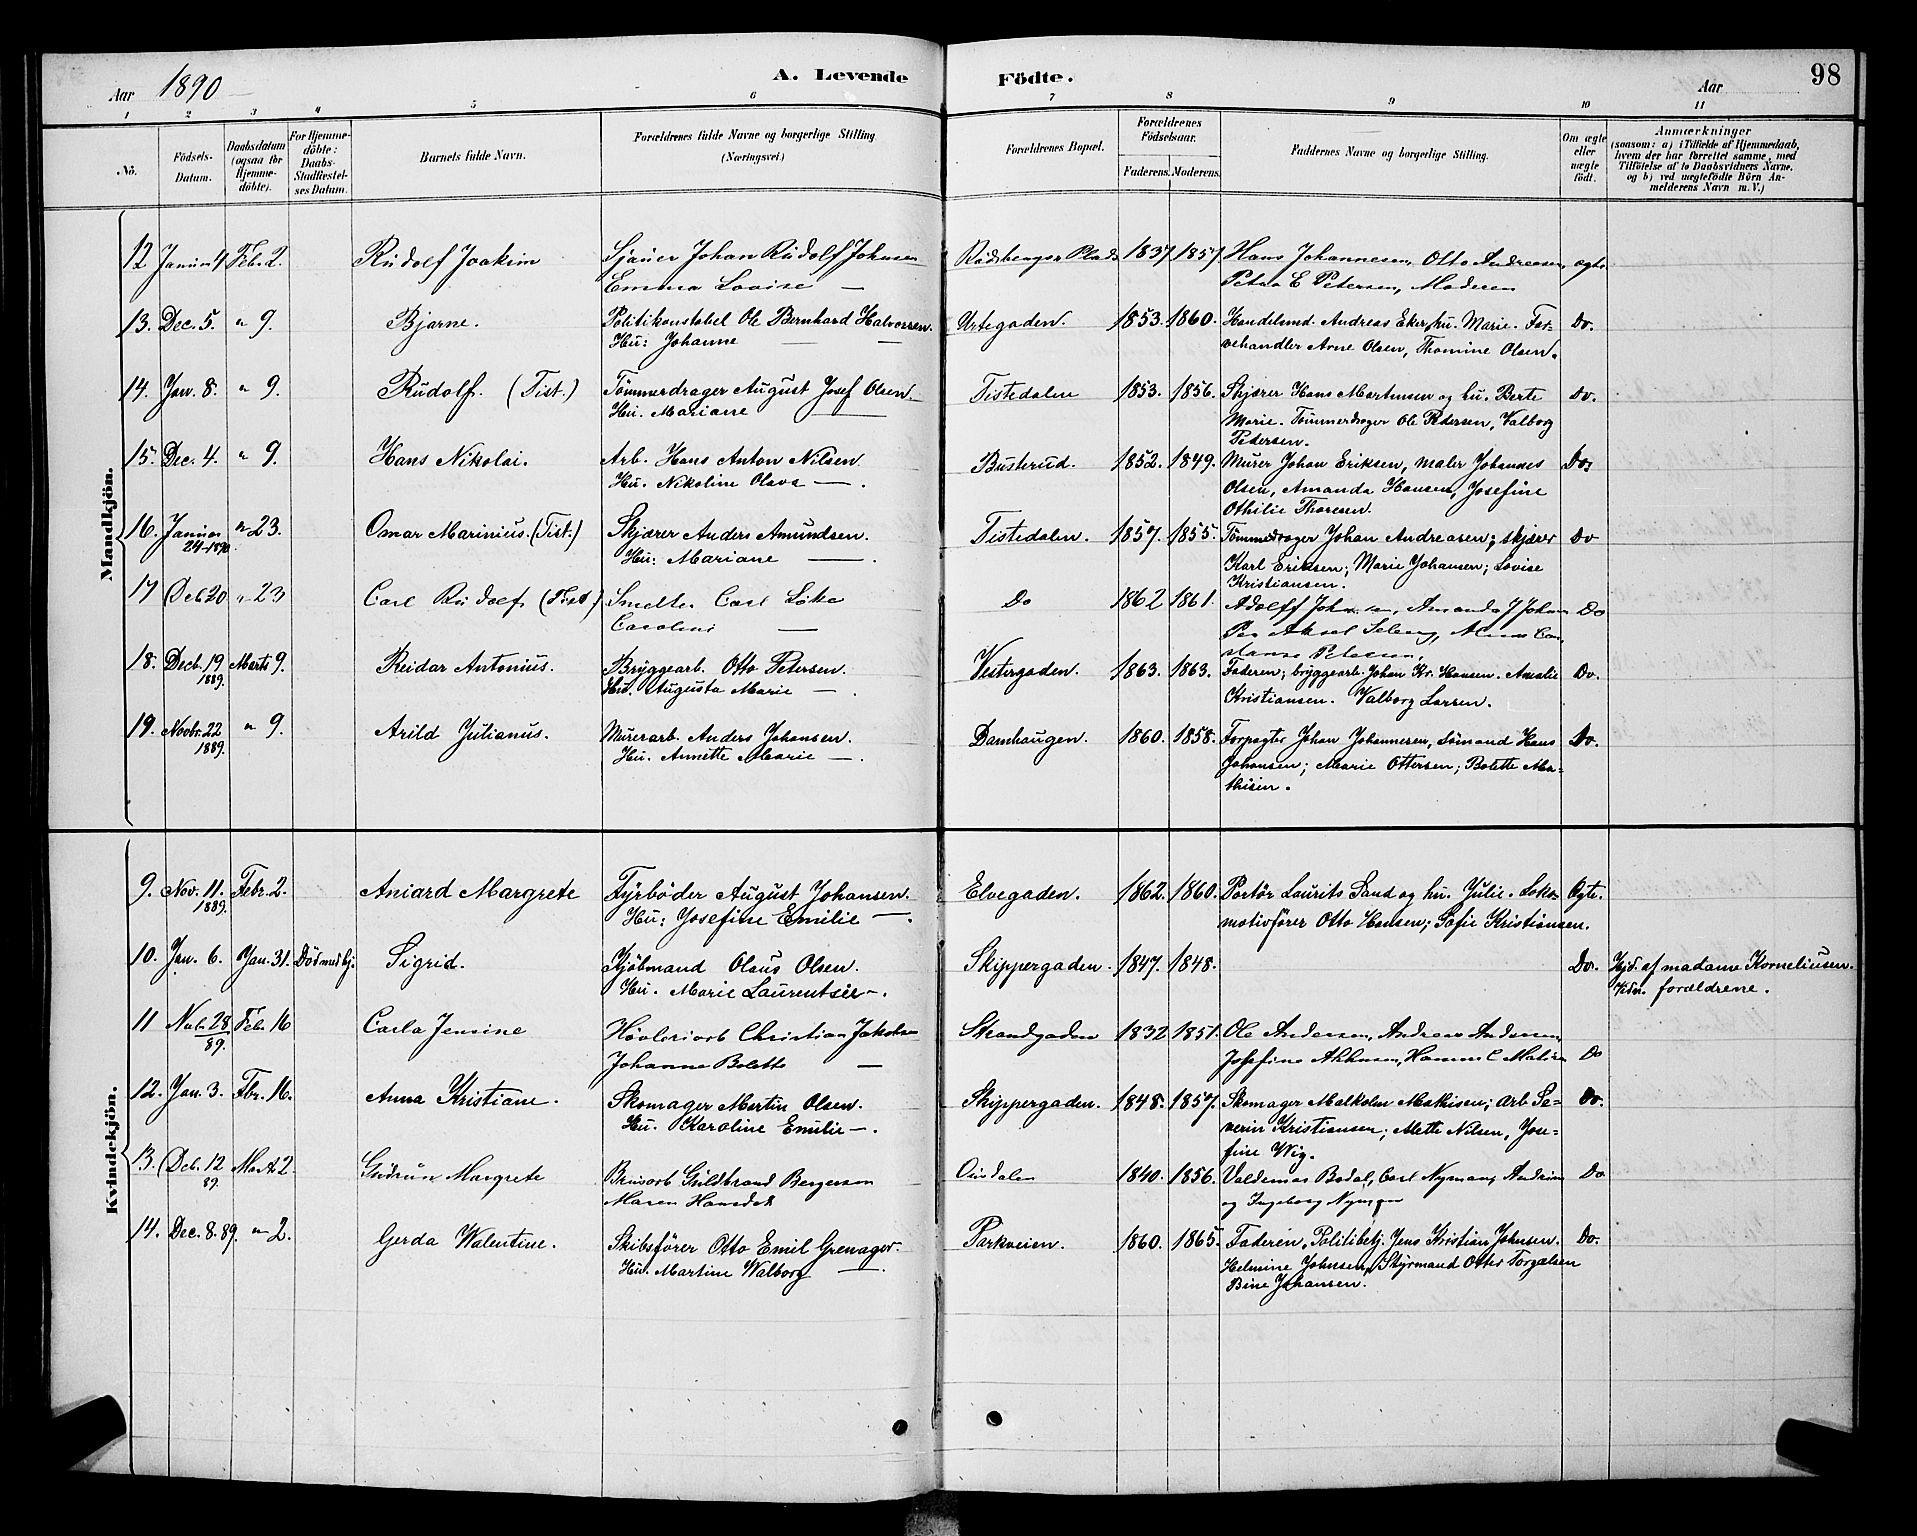 Aar 1890
A. Levende
Födte.
Aar
98
1 2 3 4 5 6 7 8 9 10 11
No.
Födsels-Datum.
Daabsdatum (ogsaa for Hjemme-döbte).
For Hjemme-döbte: Daabs-Stadfæstel-ses Datum.
Barnets fulde Navn.
Forældrenes fulde Navne og borgerlige Stilling. (Næringsvei.)
Forældrenes Bopæl.
Forældrenes Födselsaar.
Faderens. Moderens.
Faddernes Navne og borgerlige Stilling.
Om ægte eller uægte födt.
Anmærkninger (saasom: a) i Tilfælde af Hjemmedaab, hvem der har forrettet samme, med Tilföielse af to Daabsvidners Navne, og b) ved uægtefödte Börn An-melderens Navn m. V.)
Mandkjön.
12 Januar 4 Feb. 2. Rudolf Joakim Sjauer Johan Rudolf Johnsen Rödsbergs Plads 1837 1857 Hans Johannesen, Otto Andreasen, ægte
Emma Lovise — Petra E Petersen, Moderen
13. Dec. 5. " 9. Bjarne. Politikonstabel Ole Bernhard Halvorsen. Urtegaden. 1853. 1860. Handelsmd. Andreas Eker, hu. Marie. Far- Do.
Hu: Johanne — — vehandler Arne Olsen, Thomine Olsen.
14. Jan. 8. " 9. Rudolf. (Tist.) Tömmerdrager August Josef Olsen. Tistedalen 1853. 1856. Skjærer Hans Martinsen og hu. Berte Do.
Hu. Mariane — Marie. Tömmerdrager Ole Pedersen, Valborg
Pedersen.
15. Dec. 4. " 9. Hans Nikolai. Arb. Hans Anton Nilsen Busterud. 1852. 1849. Murer Johan Eriksen, maler Johannes Do.
Hu. Nikoline Olava — . Olsen, Amanda Hansen, Josefine
Othilie Thoresen.
16. Januar 24-1890. " 23. Omar Marinius. (Tist.) Skjærer Anders Amundsen. Tistedalen. 1857. 1855. Tömmedrager Johan Andreasen; skjærer Do
Hu: Mariane — . Karl Eriksen; Marie Johansen; Lovise
Kristiansen.
17 Deb 20 " 23 Carl Rudolf (Tist) Smelter Carl Löke Do 1862 1861. Adolff Johnsen, Amanda J Johnsen Do
Caroline — Per Aksel Seberg,
Petersen
18. Decb. 19 1889. Marts 9. Reidar Antonius. Bryggearb. Otto Petersen. Vestergaden. 1863. 1863. Faderen; bryggearb. Johan Kr. Hansen. Amalie Do.
Hu. Augusta Marie — . Kristiansen. Valborg Larsen.
19. Novbr. 22 1889. " 9. Arild Julianus. Murerarb. Anders Johansen. Damhaugen. 1860. 1858. Forpagter Johan Johannesen, Sömand Hans Do.
Hu. Annette Marie — . Johansen; Marie Ottersen; Bolette Ma-
thisen.
Kvindekjön.
9. Nov. 11. 1889. Febr. 2. Aniard Margrete Fyrböder August Johansen. Elvegaden. 1862. 1860. Portör Laurits Sand og hu. Julie. Loko- Ægte.
Hu: Josefine Emilie — . motivförer Otto Hansen; Sofie Kristiansen.
10. Jan. 6. Jan. 31. Död med hj. Sigrid. Kjöbmand Olaus Olsen. Skippergaden. 1847. 1848. Do. Hjd. af madame Korneliusen.
Hu. Marie Laurentse — . Vidn. forældrene.
11 Nvb. 28 89. Feb. 16 Carla Jensine Hövleriarb Christian Jakobsen Strandgaden 1832 1851. Ole Andersen, Andreas Andersen,
Johanne Bolette — Josefine Do
12. Jan. 3. Fbr. 16. Anna Kristiane. Skomager Martin Olsen. Skippergaden. 1848. 1857. Skomager Malkolm Mathisen; arb Se- Do.
Hu. Karoline Emilie — . verin Kristiansen; Mette Nilsen, Jose-
fine Wig.
13. Deb. 12 89. Mart 2 Gudrun Margrete Brusarb Guldbrand Bergersen Ousdalen 1840. 1856. Valdemar Bodal, Carl Nyman, Do
Maren Hansdat og Ingeborg Nyman
14. Dec. 8. 89. " 2. Gerda Walentine. Skibsförer Otto Emil Grenager. Parkveien. 1860. 1865. Faderen, Politibetj. Jens Kristian Johnsen. Do.
Hu. Martine Walborg — . Helmine Johnsen, Styrmand Otter Torgalsen
Bine Johansen.